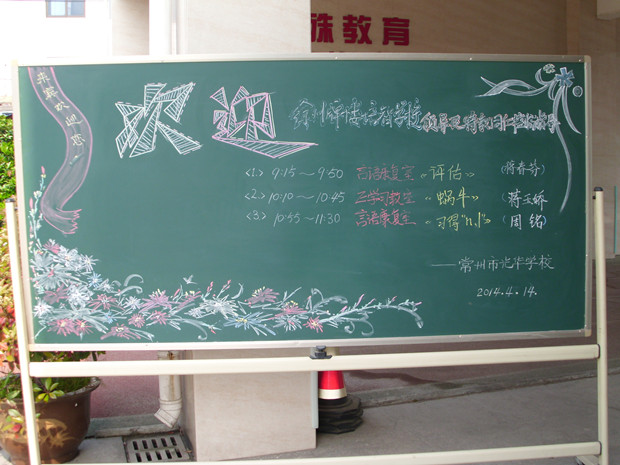 殊教育
来宾欢迎您
欢迎
徐州 培智学校 领导及特教同仁
<1> 9:15～9:50 言语康复室 《评估》 (蒋春芬)
<2> 10:10～10:45 三学习教室 《蜗牛》 (蒋玉娇)
<3> 10:55～11:30 言语康复室 《习得"n、l"》 (周铭)
——常州市光华学校
2014.4.14.